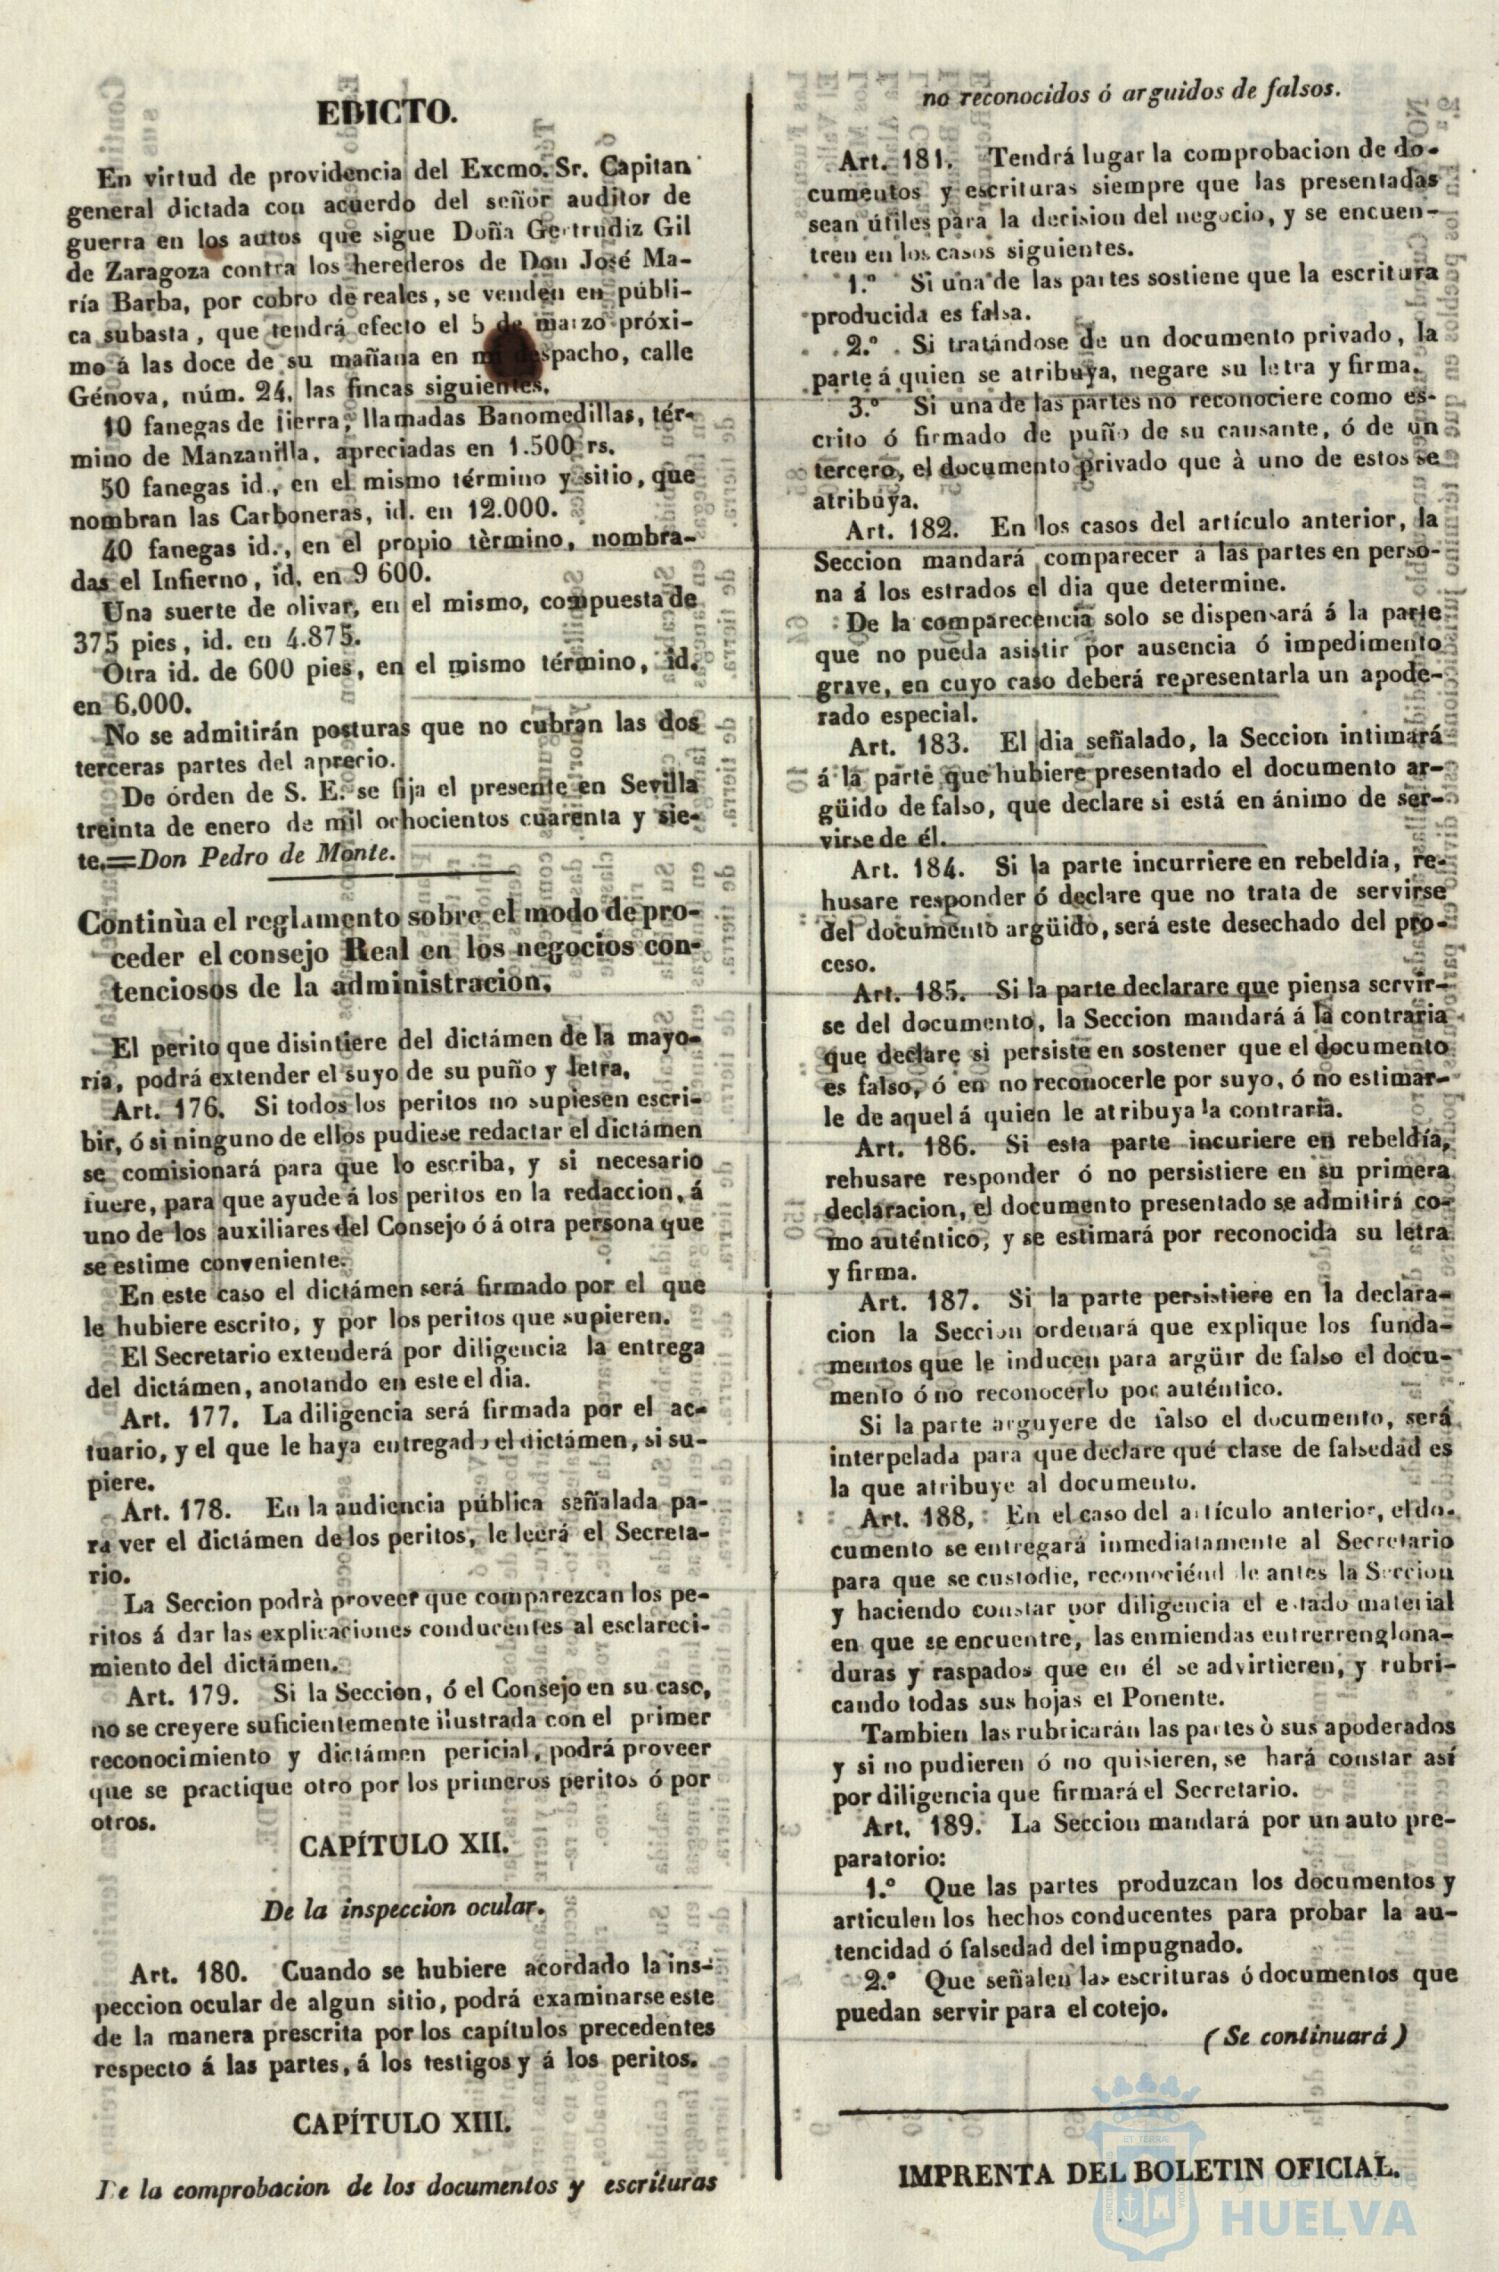 EDICTO.
En virtud de providencia del Excmo. Sr. Capitan
general dictada con acuerdo del señor auditor de
guerra en los autos que sigue Doña Gertrudiz Gil
de Zaragoza contra los herederos de Don José Ma-
ría Barba, por cobro de reales, se venden en públi-
ca subasta, que tendrá efecto el 5 de marzo próxi-
mo á las doce de su mañana en mi despacho, calle
Génova, núm. 24, las fincas siguientes.
10 fanegas de tierra, llamadas Banomedillas, tér-
mino de Manzanilla, apreciadas en 1.500 rs.
50 fanegas id., en el mismo término y sitio, que
nombran las Carboneras, id. en 12.000.
40 fanegas id., en el propio tèrmino, nombra-
das el Infierno, id. en 9 600.
Una suerte de olivar, en el mismo, compuesta de
375 pies, id. en 4.875.
Otra id. de 600 pies, en el mismo término, id.
en 6.000.
No se admitirán posturas que no cubran las dos
terceras partes del aprecio.
De órden de S. E. se fija el presente en Sevilla
treinta de enero de mil ochocientos cuarenta y sie-
te.=Don Pedro de Monte.
Continùa el reglamento sobre el modo de pro-
ceder el consejo Real en los negocios con-
tenciosos de la administracion.
El perito que disintiere del dictámen de la mayo-
ría, podrá extender el suyo de su puño y letra.
Art. 176. Si todos los peritos no supiesen escri-
bir, ó si ninguno de ellos pudiese redactar el dictámen
se comisionará para que lo escriba, y si necesario
fuere, para que ayude á los peritos en la redaccion, á
uno de los auxiliares del Consejo ó á otra persona que
se estime conveniente.
En este caso el dictámen será firmado por el que
le hubiere escrito, y por los peritos que supieren.
El Secretario extenderá por diligencia la entrega
del dictámen, anotando en este el dia.
Art. 177. La diligencia será firmada por el ac-
tuario, y el que le haya entregado el dictámen, si su-
piere.
Art. 178. En la audiencia pública señalada pa-
ra ver el dictámen de los peritos, le leerá el Secreta-
rio.
La Seccion podrà proveer que comparezcan los pe-
ritos á dar las explicaciones conducentes al esclareci-
miento del dictámen.
Art. 179. Si la Seccion, ó el Consejo en su caso,
no se creyere suficientemente ilustrada con el primer
reconocimiento y dictámen pericial, podrá proveer
que se practique otro por los primeros peritos ó por
otros.
CAPÍTULO XII.
De la inspeccion ocular.
Art. 180. Cuando se hubiere acordado la ins-
peccion ocular de algun sitio, podrá examinarse este
de la manera prescrita por los capítulos precedentes
respecto á las partes, á los testigos y á los peritos.
CAPÍTULO XIII.
De la comprobacion de los documentos y escrituras
no reconocidos ó arguidos de falsos.
Art. 181. Tendrá lugar la comprobacion de do-
cumentos y escrituras siempre que las presentadas
sean útiles para la decision del negocio, y se encuen-
tren en los casos siguientes.
1.º Si una de las partes sostiene que la escritura
producida es falsa.
2.º Si tratándose de un documento privado, la
parte á quien se atribuya, negare su letra y firma.
3.º Si una de las partes no reconociere como es-
crito ó firmado de puño de su causante, ó de un
tercero, el documento privado que à uno de estos se
atribuya.
Art. 182. En los casos del artículo anterior, la
Seccion mandará comparecer á las partes en perso-
na á los estrados el dia que determine.
De la comparecencia solo se dispensará á la parte
que no pueda asistir por ausencia ó impedimento
grave, en cuyo caso deberá representarla un apode-
rado especial.
Art. 183. El dia señalado, la Seccion intimará
á la parte que hubiere presentado el documento ar-
güido de falso, que declare si está en ánimo de ser-
virse de él.
Art. 184. Si la parte incurriere en rebeldía, re-
husare responder ó declare que no trata de servirse
del documento argüido, será este desechado del pro-
ceso.
Art. 185. Si la parte declarare que piensa servir-
se del documento, la Seccion mandará á la contraria
que declare si persiste en sostener que el documento
es falso, ó en no reconocerle por suyo, ó no estimar-
le de aquel á quien le atribuya la contraria.
Art. 186. Si esta parte incuriere en rebeldía,
rehusare responder ó no persistiere en su primera
declaracion, el documento presentado se admitirá co-
mo auténtico, y se estimará por reconocida su letra
y firma.
Art. 187. Si la parte persistiere en la declara-
cion la Seccion ordenará que explique los funda-
mentos que le inducen para argüir de falso el docu-
mento ó no reconocerlo por auténtico.
Si la parte arguyere de falso el documento, será
interpelada para que declare qué clase de falsedad es
la que atribuye al documento.
Art. 188, En el caso del artículo anterior, el do-
cumento se entregará inmediatamente al Secretario
para que se custodie, reconociéndole antes la Seccion
y haciendo constar por diligencia el estado material
en que se encuentre, las enmiendas entrerrenglona-
duras y raspados que en él se advirtieren, y rubri-
cando todas sus hojas el Ponente.
Tambien las rubricarán las partes ò sus apoderados
y si no pudieren ó no quisieren, se hará constar así
por diligencia que firmará el Secretario.
Art. 189. La Seccion mandará por un auto pre-
paratorio:
1.º Que las partes produzcan los documentos y
articulen los hechos conducentes para probar la au-
tencidad ó falsedad del impugnado.
2.º Que señalen las escrituras ó documentos que
puedan servir para el cotejo.
(Se continuará)
IMPRENTA DEL BOLETIN OFICIAL.
Ayuntamiento de
HUELVA